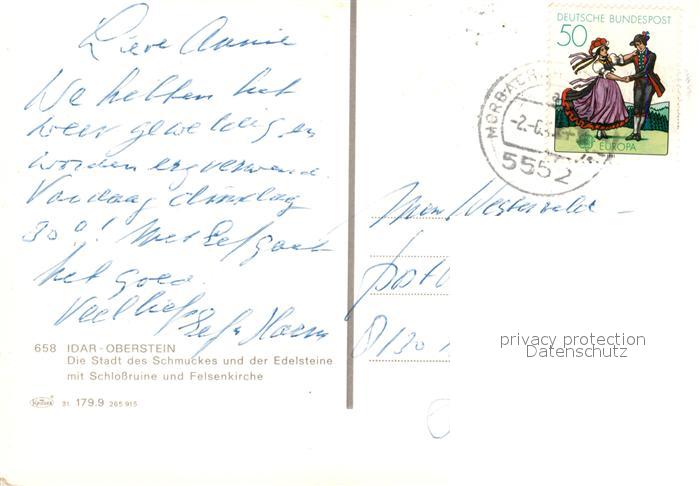 Lieve Annie
We hebben het
weer geweldig en
worden erg verwend.
Vandaag dinsdag
30°! Met Eef gaat
het goed.
Veel liefs
Eef
658 IDAR-OBERSTEIN
Die Stadt des Schmuckes und der Edelsteine
mit Schloßruine und Felsenkirche
Krüger 31. 179.9 265 915
DEUTSCHE BUNDESPOST
50
EUROPA
MORBACH
-2.-6.
5552
Westerveld
post
privacy protection
Datenschutz